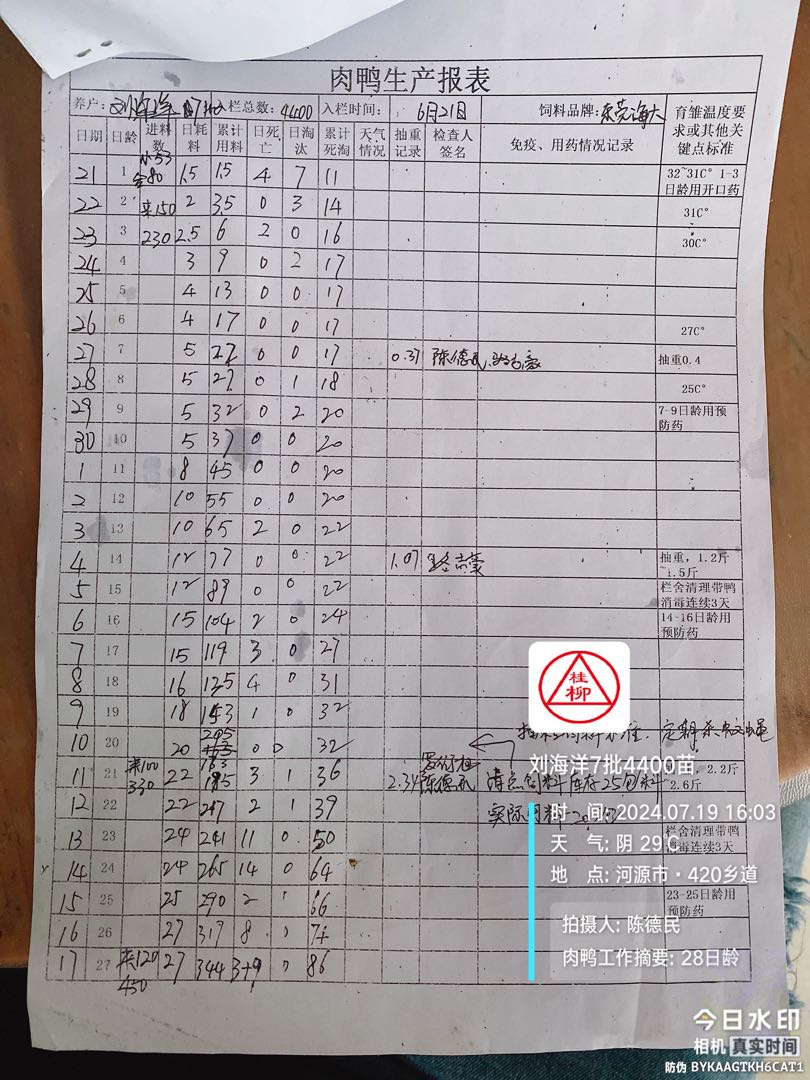 肉鸭生产报表
养户: 刘海洋 7批 入栏总数: 4400 入栏时间: 6月21日 饲料品牌: 东莞海大 育雏温度要求或其他关键点标准
日期 日龄 进料数 日耗料 累计用料 日死亡 日淘汰 累计死淘 天气情况 抽重记录 检查人签名 免疫、用药情况记录
21 1 80 1.5 1.5 4 7 11 32~31C° 1-3日龄用开口药
22 2 来150 2 3.5 0 3 14 31C°
23 3 230 2.5 6 2 0 16 30C°
24 4 3 9 0 2 17
25 5 4 13 0 0 17
26 6 4 17 0 0 17 27C°
27 7 5 22 0 0 17 0.37 陈德民 抽重0.4
28 8 5 27 0 1 18 25C°
29 9 5 32 0 2 20 7-9日龄用预防药
30 10 5 37 0 0 20
1 11 8 45 0 0 20
2 12 10 55 0 0 20
3 13 10 65 2 0 22
4 14 12 77 0 0 22 1.07 抽重,1.2斤 1.5斤
5 15 12 89 0 0 22 栏舍清理带鸭消毒连续3天
6 16 15 104 2 0 24 14-16日龄用预防药
7 17 15 119 3 0 27
8 18 16 135 4 0 31
9 19 18 153 1 0 32
10 20 20 0 0 32 定期杀虫灭蝇
11 21 来100 330 22 3 1 36 2.34 陈德民 清点饲料库存25包料 2.2斤 2.6斤
12 22 22 2 1 39 实际用料
13 23 24 241 11 0 50 栏舍清理带鸭消毒连续3天
14 24 24 265 14 0 64
15 25 25 290 2 66 23-25日龄用预防药
16 26 27 317 8 0 74
17 27 来120 450 27 344 3+9 0 86
桂柳
刘海洋7批4400苗
时 间: 2024.07.19 16:03
天 气: 阴 29℃
地 点: 河源市·420乡道
拍摄人: 陈德民
肉鸭工作摘要: 28日龄
今日水印
相机 真实时间
防伪 BYKAAGTKH6CAT1